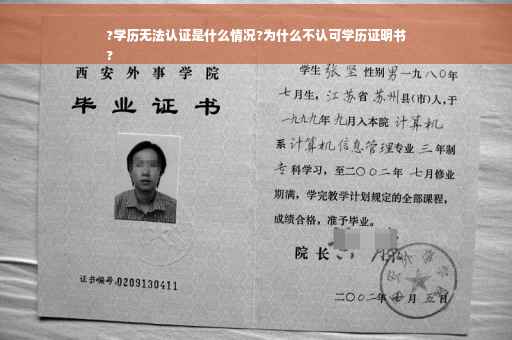 ?学历无法认证是什么情况?为什么不认可学历证明书
?
西安外事学院
毕业证书
证书编号:0209130411
学生 张坚 性别 男 一九八〇年
七月生，江苏省 苏州县(市)人,于
一九九九年 九月入本院 计算机
系 计算机信息管理专业 三 年制
专 科学习，至二〇〇二年 七月修业
期满，学完教学计划规定的全部课程，
成绩合格，准予毕业。
院 长
二〇〇二年 月 五 日